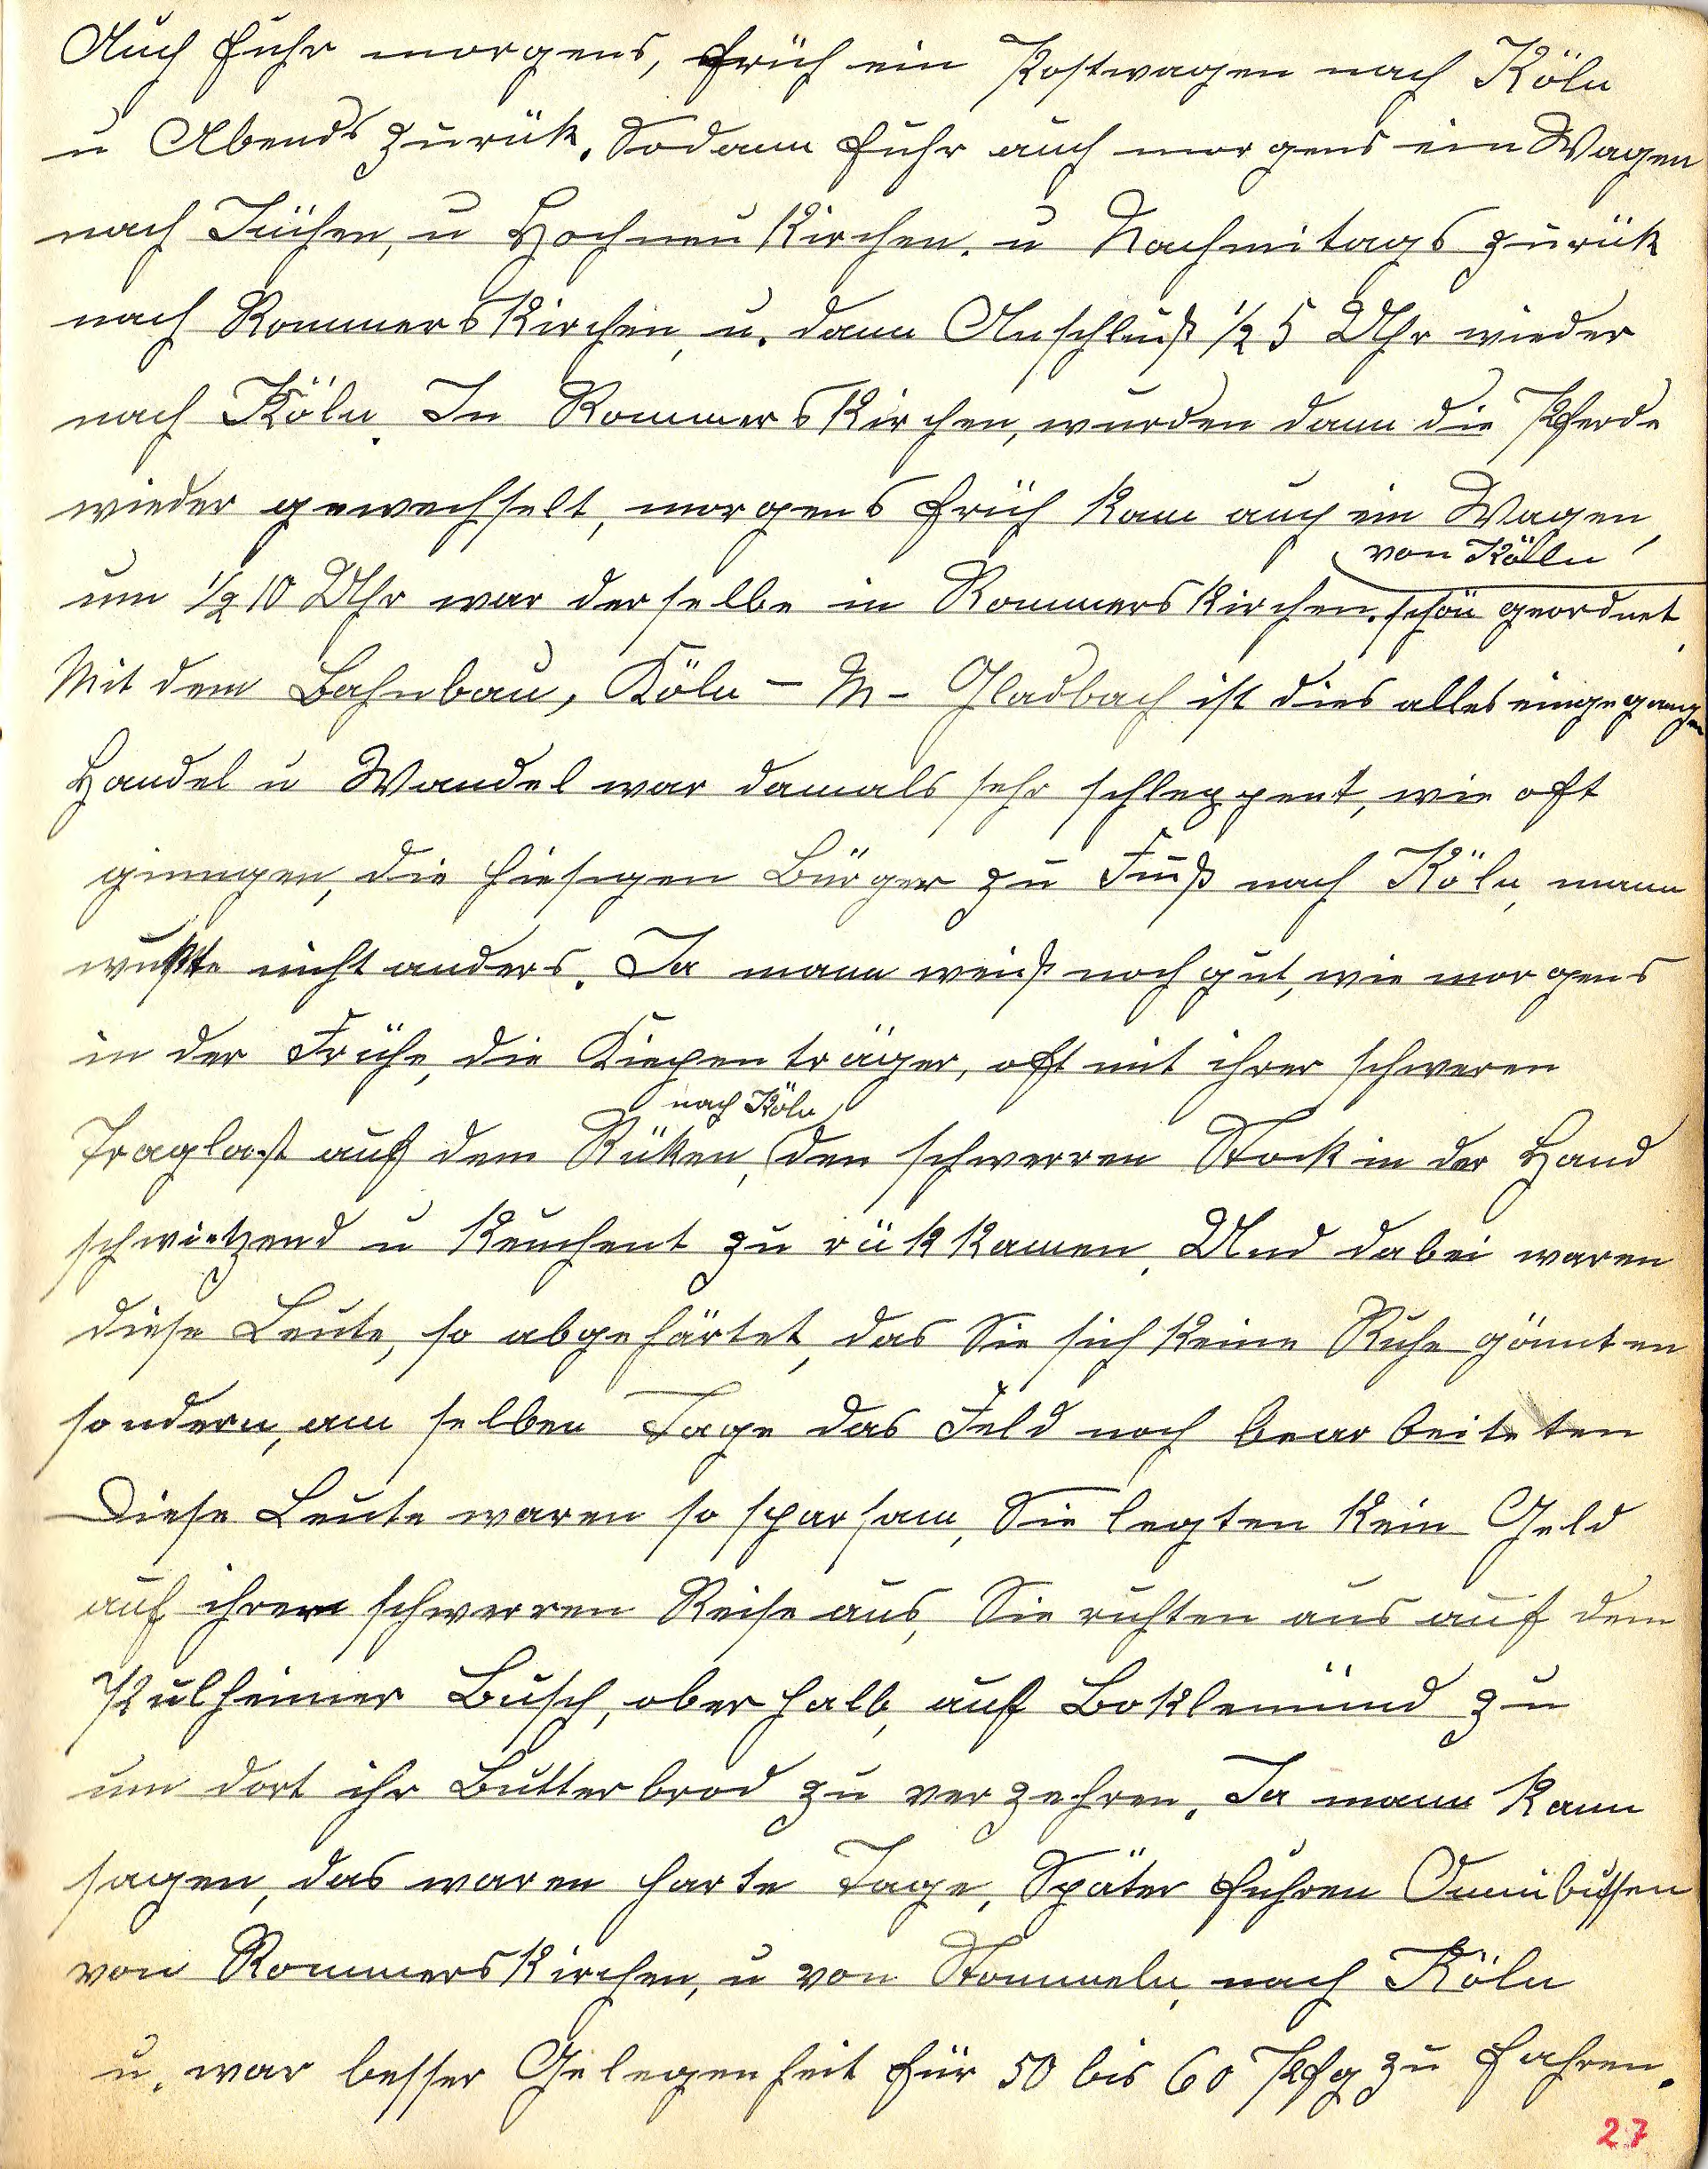 Auch fuhr morgens, früh ein Postwagen nach Köln
u Abends zurük. Sodann fuhr auch morgens ein Wagen
nach Jüchen, u Hochneukirchen. u Nachmitags zurük
nach Rommerskirchen, u. dann Anschluß ½ 5 Uhr wieder
nach Köln. In Rommerskirchen, wurden dann die Pferde
wieder gewechselt, morgens früh kam auch ein Wagen,
von Kölln
um ½ 10 Uhr war derselbe in Rommerskirchen. schön geordnet.
Mit dem Bahnbau, Köln – M – Gladbach ist dies alles eingegangen
Handel u Wandel war damals sehr schleppent, wie oft
ginngen, die hiesigen Bürger zu Fuß nach Köln, mann
wußte nicht anders. Ja mann weiß noch gut, wie morgens
in der Frühe, die Kiepenträger, oft mit ihrer schweren
nach Köln
Traglast auf dem Rüken, den schwerren Stock in der Hand
schwietzend u keuchent zu rükkamen. Und dabei waren
diese Leute, so abgehärtet, das Sie sich keine Ruhe gönnten
sondern, am selben Tage das Feld noch bearbeiteten
Diese Leute waren so sparsam, Sie legten kein Geld
auf ihrem schwerren Reise aus, Sie ruhten aus auf dem
Pulheimer Busch, oberhalb, auf Boklemünd zu
um dort ihr Butterbrod zu verzehren. Ja mann kann
sagen, das waren harte Tage, Später fuhren Omnibussen
von Rommerskirchen, u von Stommeln, nach Köln
u. war besser Gelegenheit für 50 bis 60 Pfg zu fahren.
27